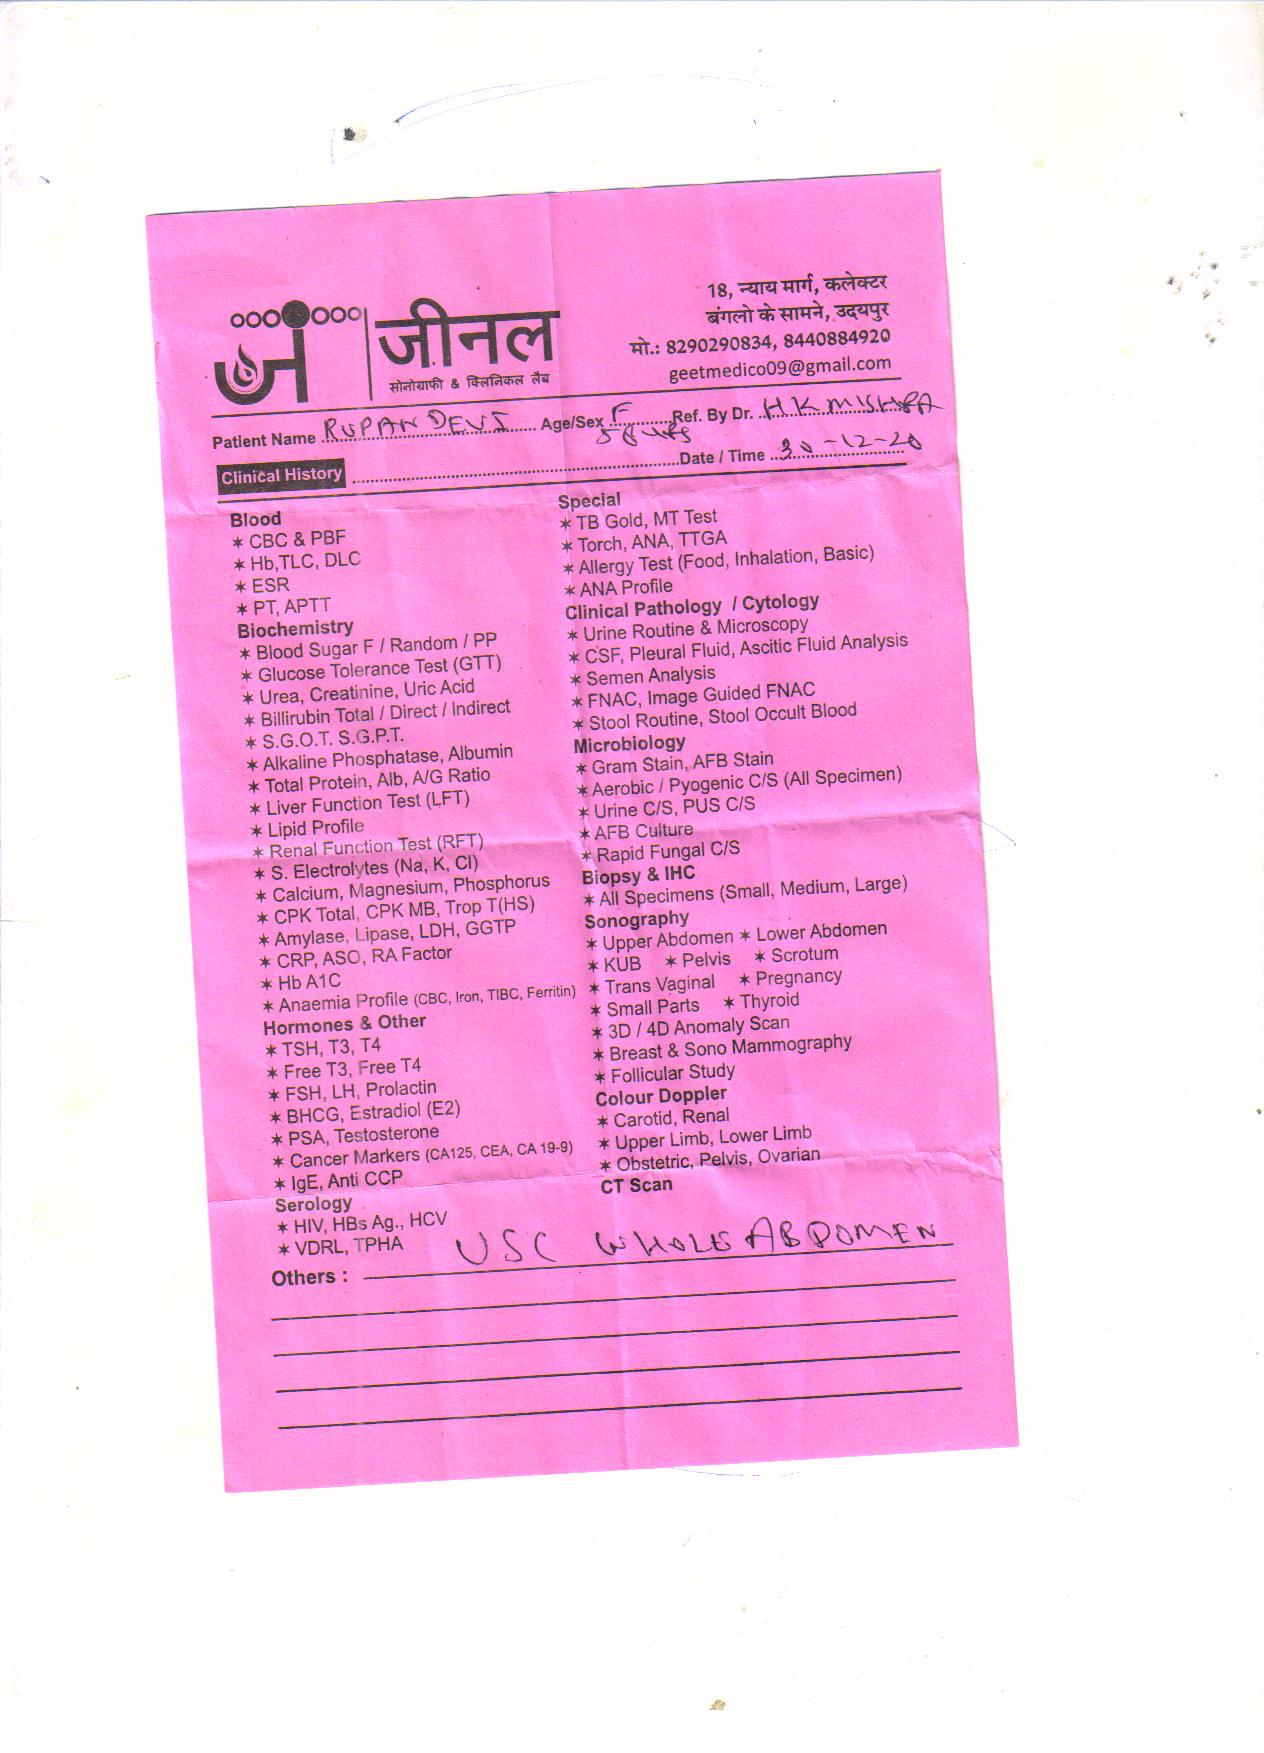 जीनल
सोनोग्राफी & क्लिनिकल लैब
18, न्याय मार्ग, कलेक्टर
बंगलो के सामने, उदयपुर
मो.: 8290290834, 8440884920
geetmedico09@gmail.com
Patient Name RUPAN DEVI Age/Sex F Ref. By Dr. H K MISHRA
Clinical History Date / Time 30-12-20
Blood
✶ CBC & PBF
✶ Hb,TLC, DLC
✶ ESR
✶ PT, APTT
Biochemistry
✶ Blood Sugar F / Random / PP
✶ Glucose Tolerance Test (GTT)
✶ Urea, Creatinine, Uric Acid
✶ Billirubin Total / Direct / Indirect
✶ S.G.O.T. S.G.P.T.
✶ Alkaline Phosphatase, Albumin
✶ Total Protein, Alb, A/G Ratio
✶ Liver Function Test (LFT)
✶ Lipid Profile
✶ Renal Function Test (RFT)
✶ S. Electrolytes (Na, K, Cl)
✶ Calcium, Magnesium, Phosphorus
✶ CPK Total, CPK MB, Trop T(HS)
✶ Amylase, Lipase, LDH, GGTP
✶ CRP, ASO, RA Factor
✶ Hb A1C
✶ Anaemia Profile (CBC, Iron, TIBC, Ferritin)
Hormones & Other
✶ TSH, T3, T4
✶ Free T3, Free T4
✶ FSH, LH, Prolactin
✶ BHCG, Estradiol (E2)
✶ PSA, Testosterone
✶ Cancer Markers (CA125, CEA, CA 19-9)
✶ IgE, Anti CCP
Serology
✶ HIV, HBs Ag., HCV
✶ VDRL, TPHA
Special
✶ TB Gold, MT Test
✶ Torch, ANA, TTGA
✶ Allergy Test (Food, Inhalation, Basic)
✶ ANA Profile
Clinical Pathology / Cytology
✶ Urine Routine & Microscopy
✶ CSF, Pleural Fluid, Ascitic Fluid Analysis
✶ Semen Analysis
✶ FNAC, Image Guided FNAC
✶ Stool Routine, Stool Occult Blood
Microbiology
✶ Gram Stain, AFB Stain
✶ Aerobic / Pyogenic C/S (All Specimen)
✶ Urine C/S, PUS C/S
✶ AFB Culture
✶ Rapid Fungal C/S
Biopsy & IHC
✶ All Specimens (Small, Medium, Large)
Sonography
✶ Upper Abdomen ✶ Lower Abdomen
✶ KUB ✶ Pelvis ✶ Scrotum
✶ Trans Vaginal ✶ Pregnancy
✶ Small Parts ✶ Thyroid
✶ 3D / 4D Anomaly Scan
✶ Breast & Sono Mammography
✶ Follicular Study
Colour Doppler
✶ Carotid, Renal
✶ Upper Limb, Lower Limb
✶ Obstetric, Pelvis, Ovarian
CT Scan
USG WHOLE ABDOMEN
Others :